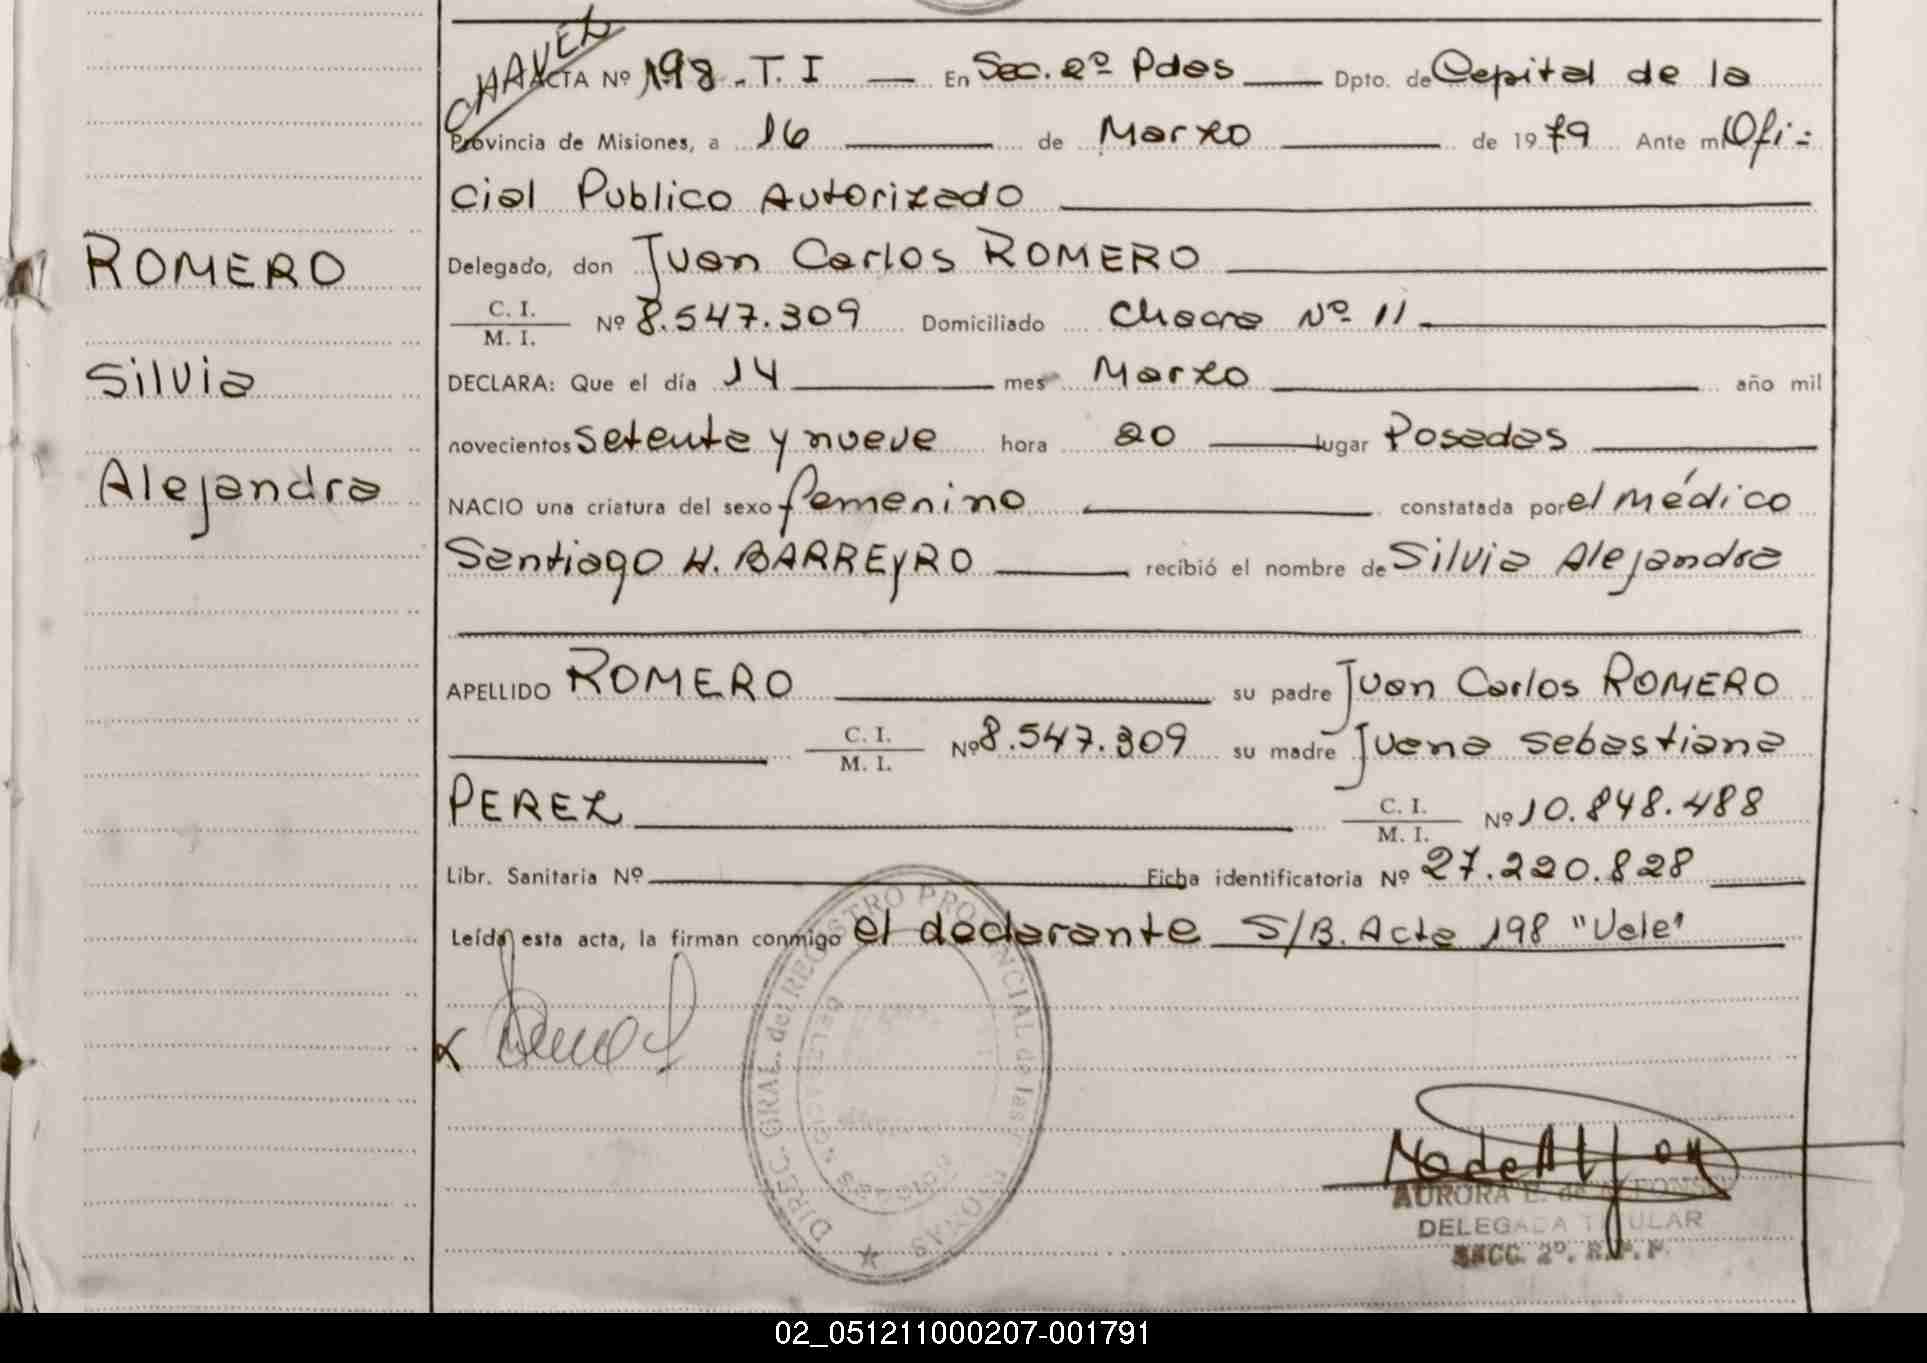 CHAVEZ
ACTA Nº 198 - T. I — En Sec. 2º Pdas — Dpto. de Capital de la
Provincia de Misiones, a 16 — de Marzo — de 1979 Ante mí Ofi=
cial Publico Autorizado
ROMERO
Delegado, don Juan Carlos ROMERO
C. I. / M. I. Nº 8.547.309 Domiciliado Chacra Nº 11
Silvia
DECLARA: Que el día 14 — mes Marzo — año mil
novecientos setenta y nueve hora 20 — lugar Posadas
Alejandra
NACIO una criatura del sexo femenino — constatada por el médico
Santiago H. BARREyRO — recibió el nombre de Silvia Alejandra
APELLIDO ROMERO — su padre Juan Carlos ROMERO
C. I. / M. I. Nº 8.547.309 su madre Juana Sebastiana
PEREZ — C. I. / M. I. Nº 10.848.488
Libr. Sanitaria Nº — Ficha identificatoria Nº 27.220.828
Leída esta acta, la firman conmigo el declarante S/B. Acta 198 "Vale"
DIREC. GRAL. del REGISTRO PROVINCIAL de las PERSONAS
AURORA E. de ALFONSO
DELEGADA TITULAR
SECC. 2º. R.P.P.
02_051211000207-001791